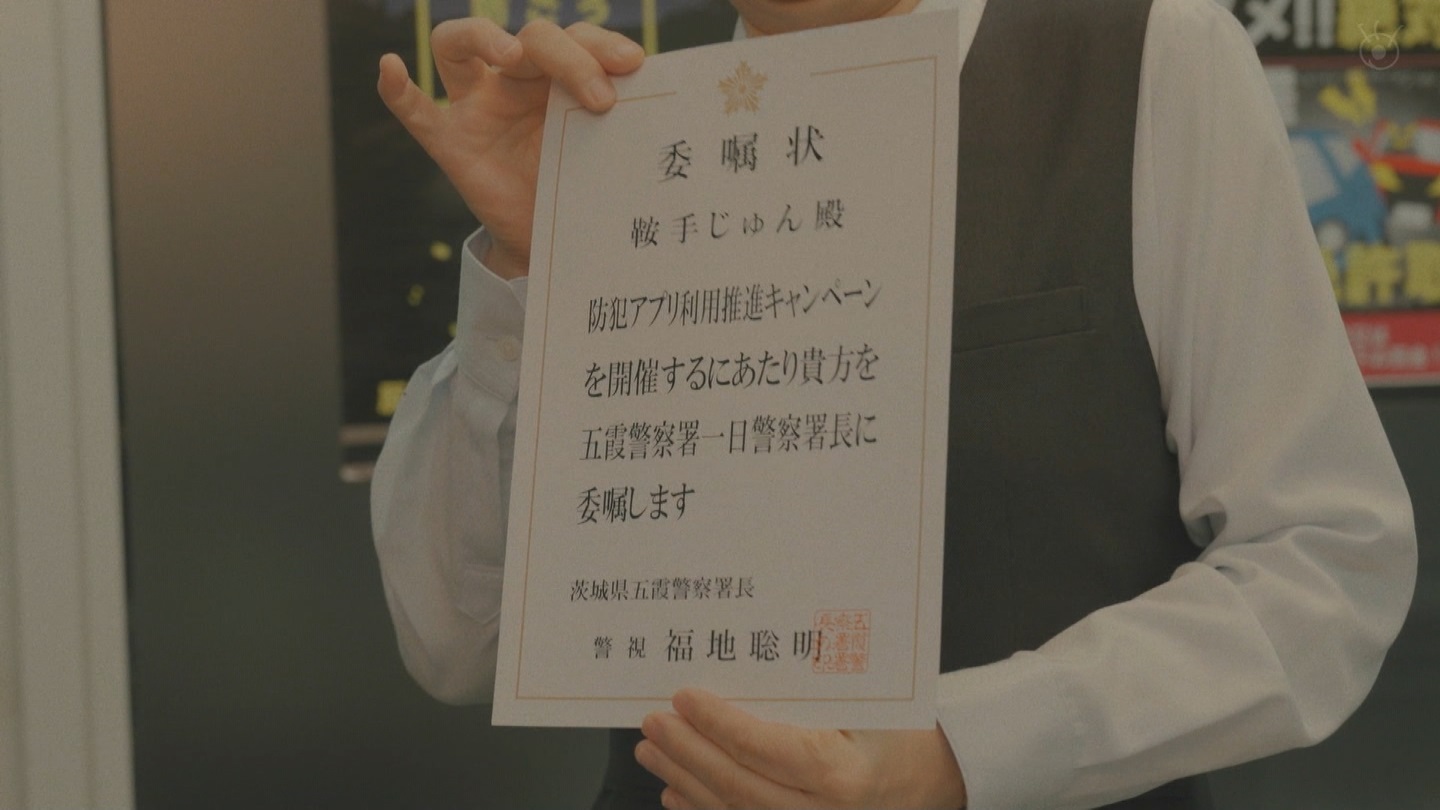 委嘱状
鞍手じゅん殿
防犯アプリ利用推進キャンペーン
を開催するにあたり貴方を
五霞警察署一日警察署長に
委嘱します
茨城県五霞警察署長
警視 福地聡明